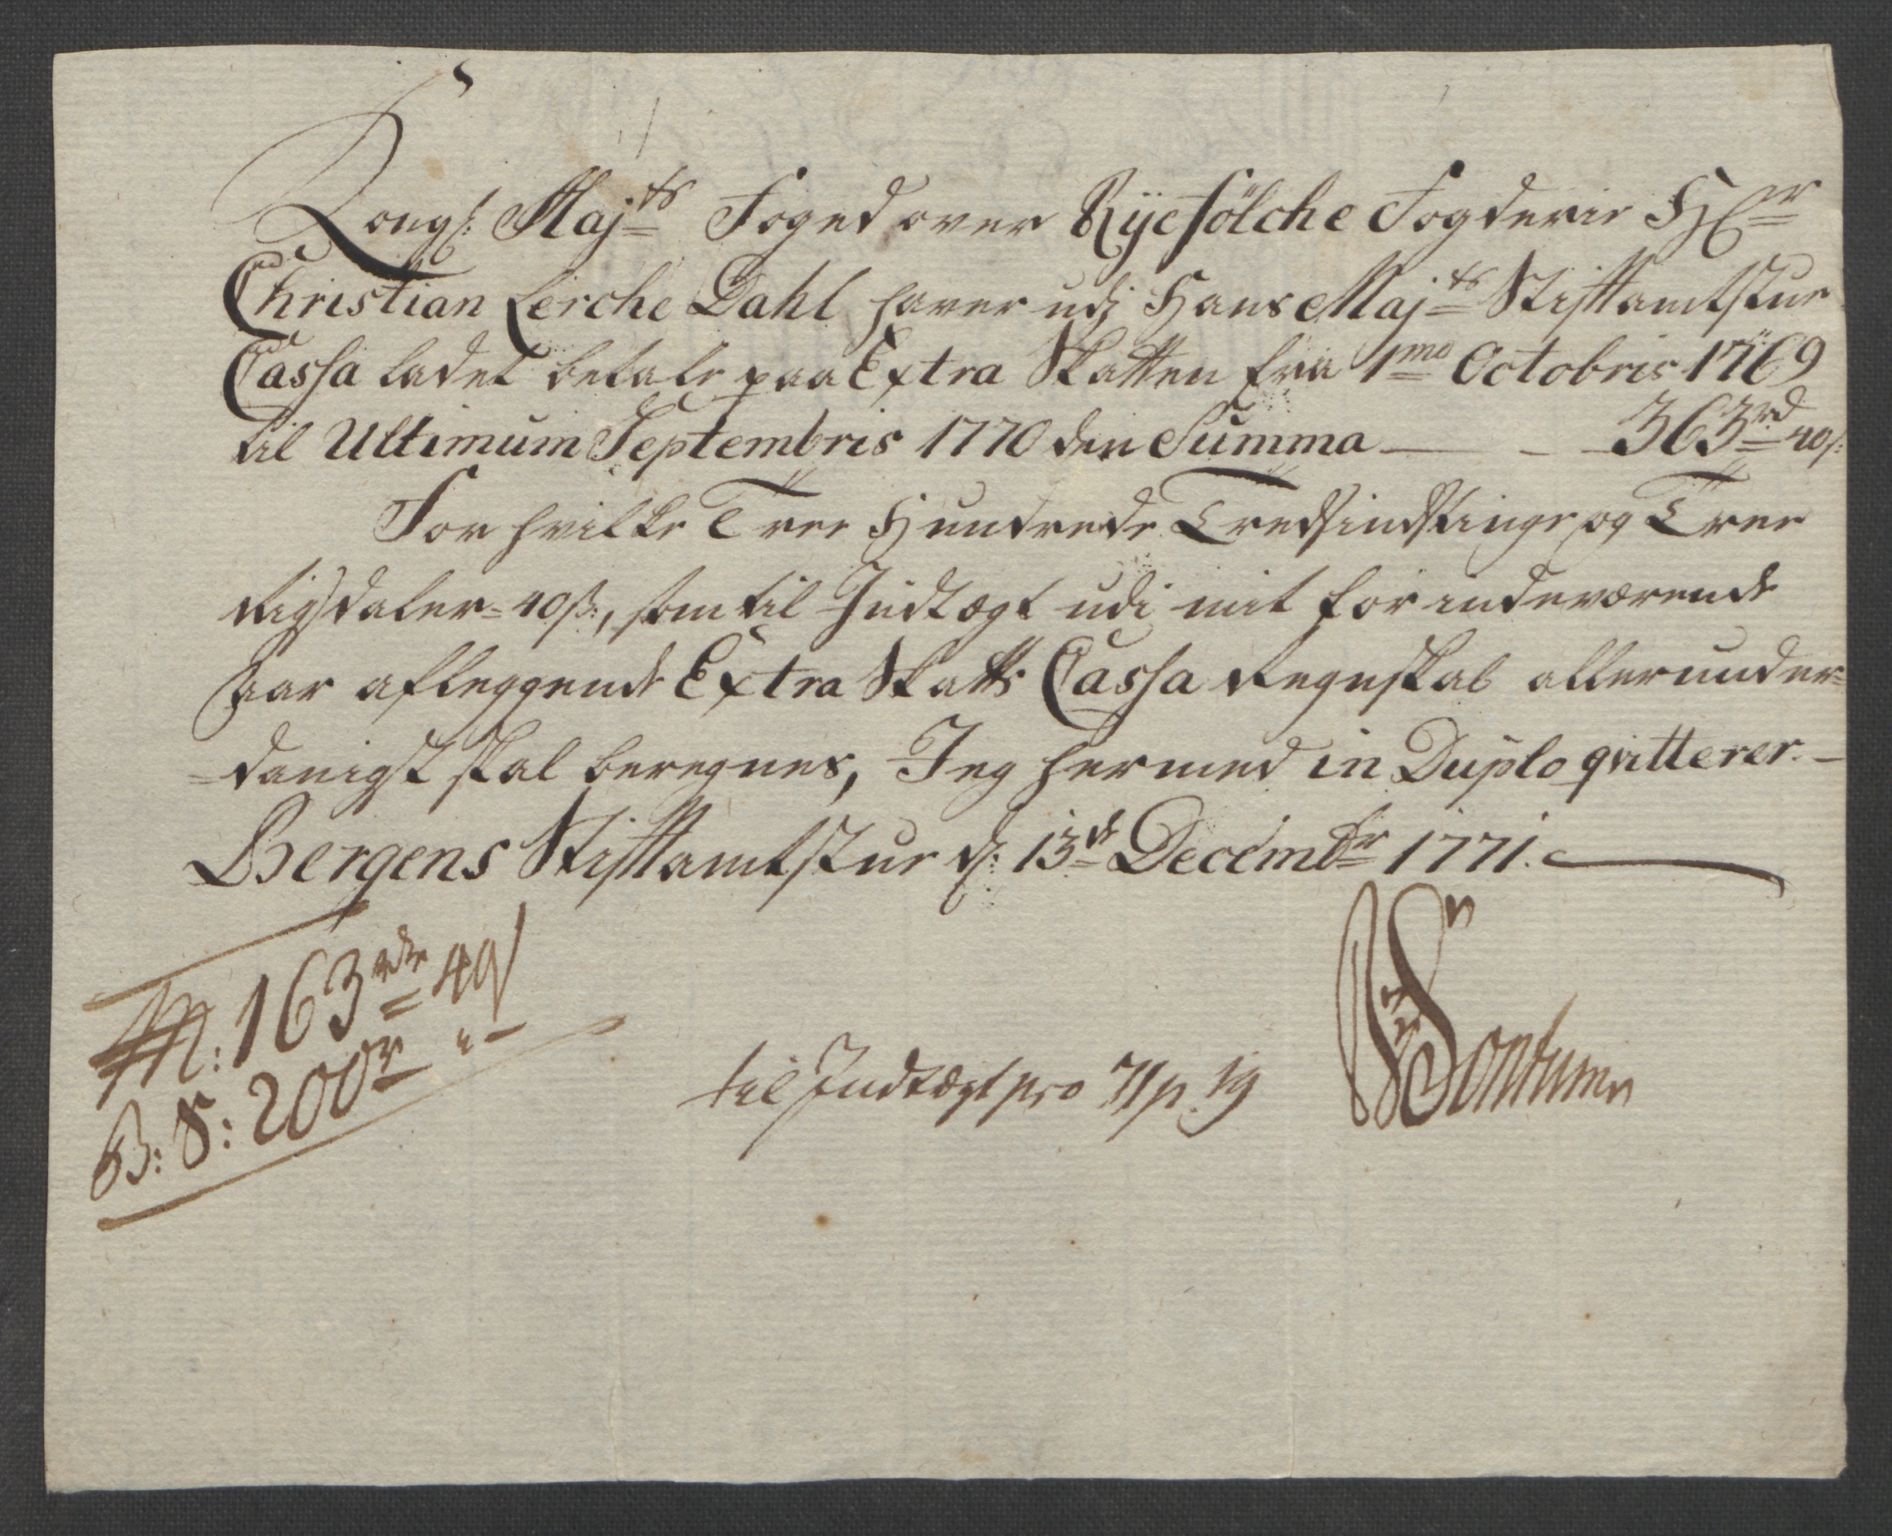 Kongl: Maj:ts Foged over Ryefölche Fogderie Hr
Christian Lerche Dahl haver udj Hans Maj:ts Stiftamtstue
Cassa ladet betale paa Extra Skatten fra 1mo Octobris 1769
til Ultimum Septembris 1770 den Summa — 363rd 40ß:
For hvilke Tree Hundrede Tredsindstinge og Tree
Rigsdaler 40ß:, som til Indtægt udi mit for indeværende
Aar afleggende Extra Skatts Cassa Regnskab allerunder=
=danigst skal beregnes, Jeg hermed in Duplo qvitterer.
Bergens Stiftamtstue d: 13de Decembr 1771.
M: 163rdr 40ß
B: S: 200r " —
til Indtægt pro 71 p. 19
Sontumn